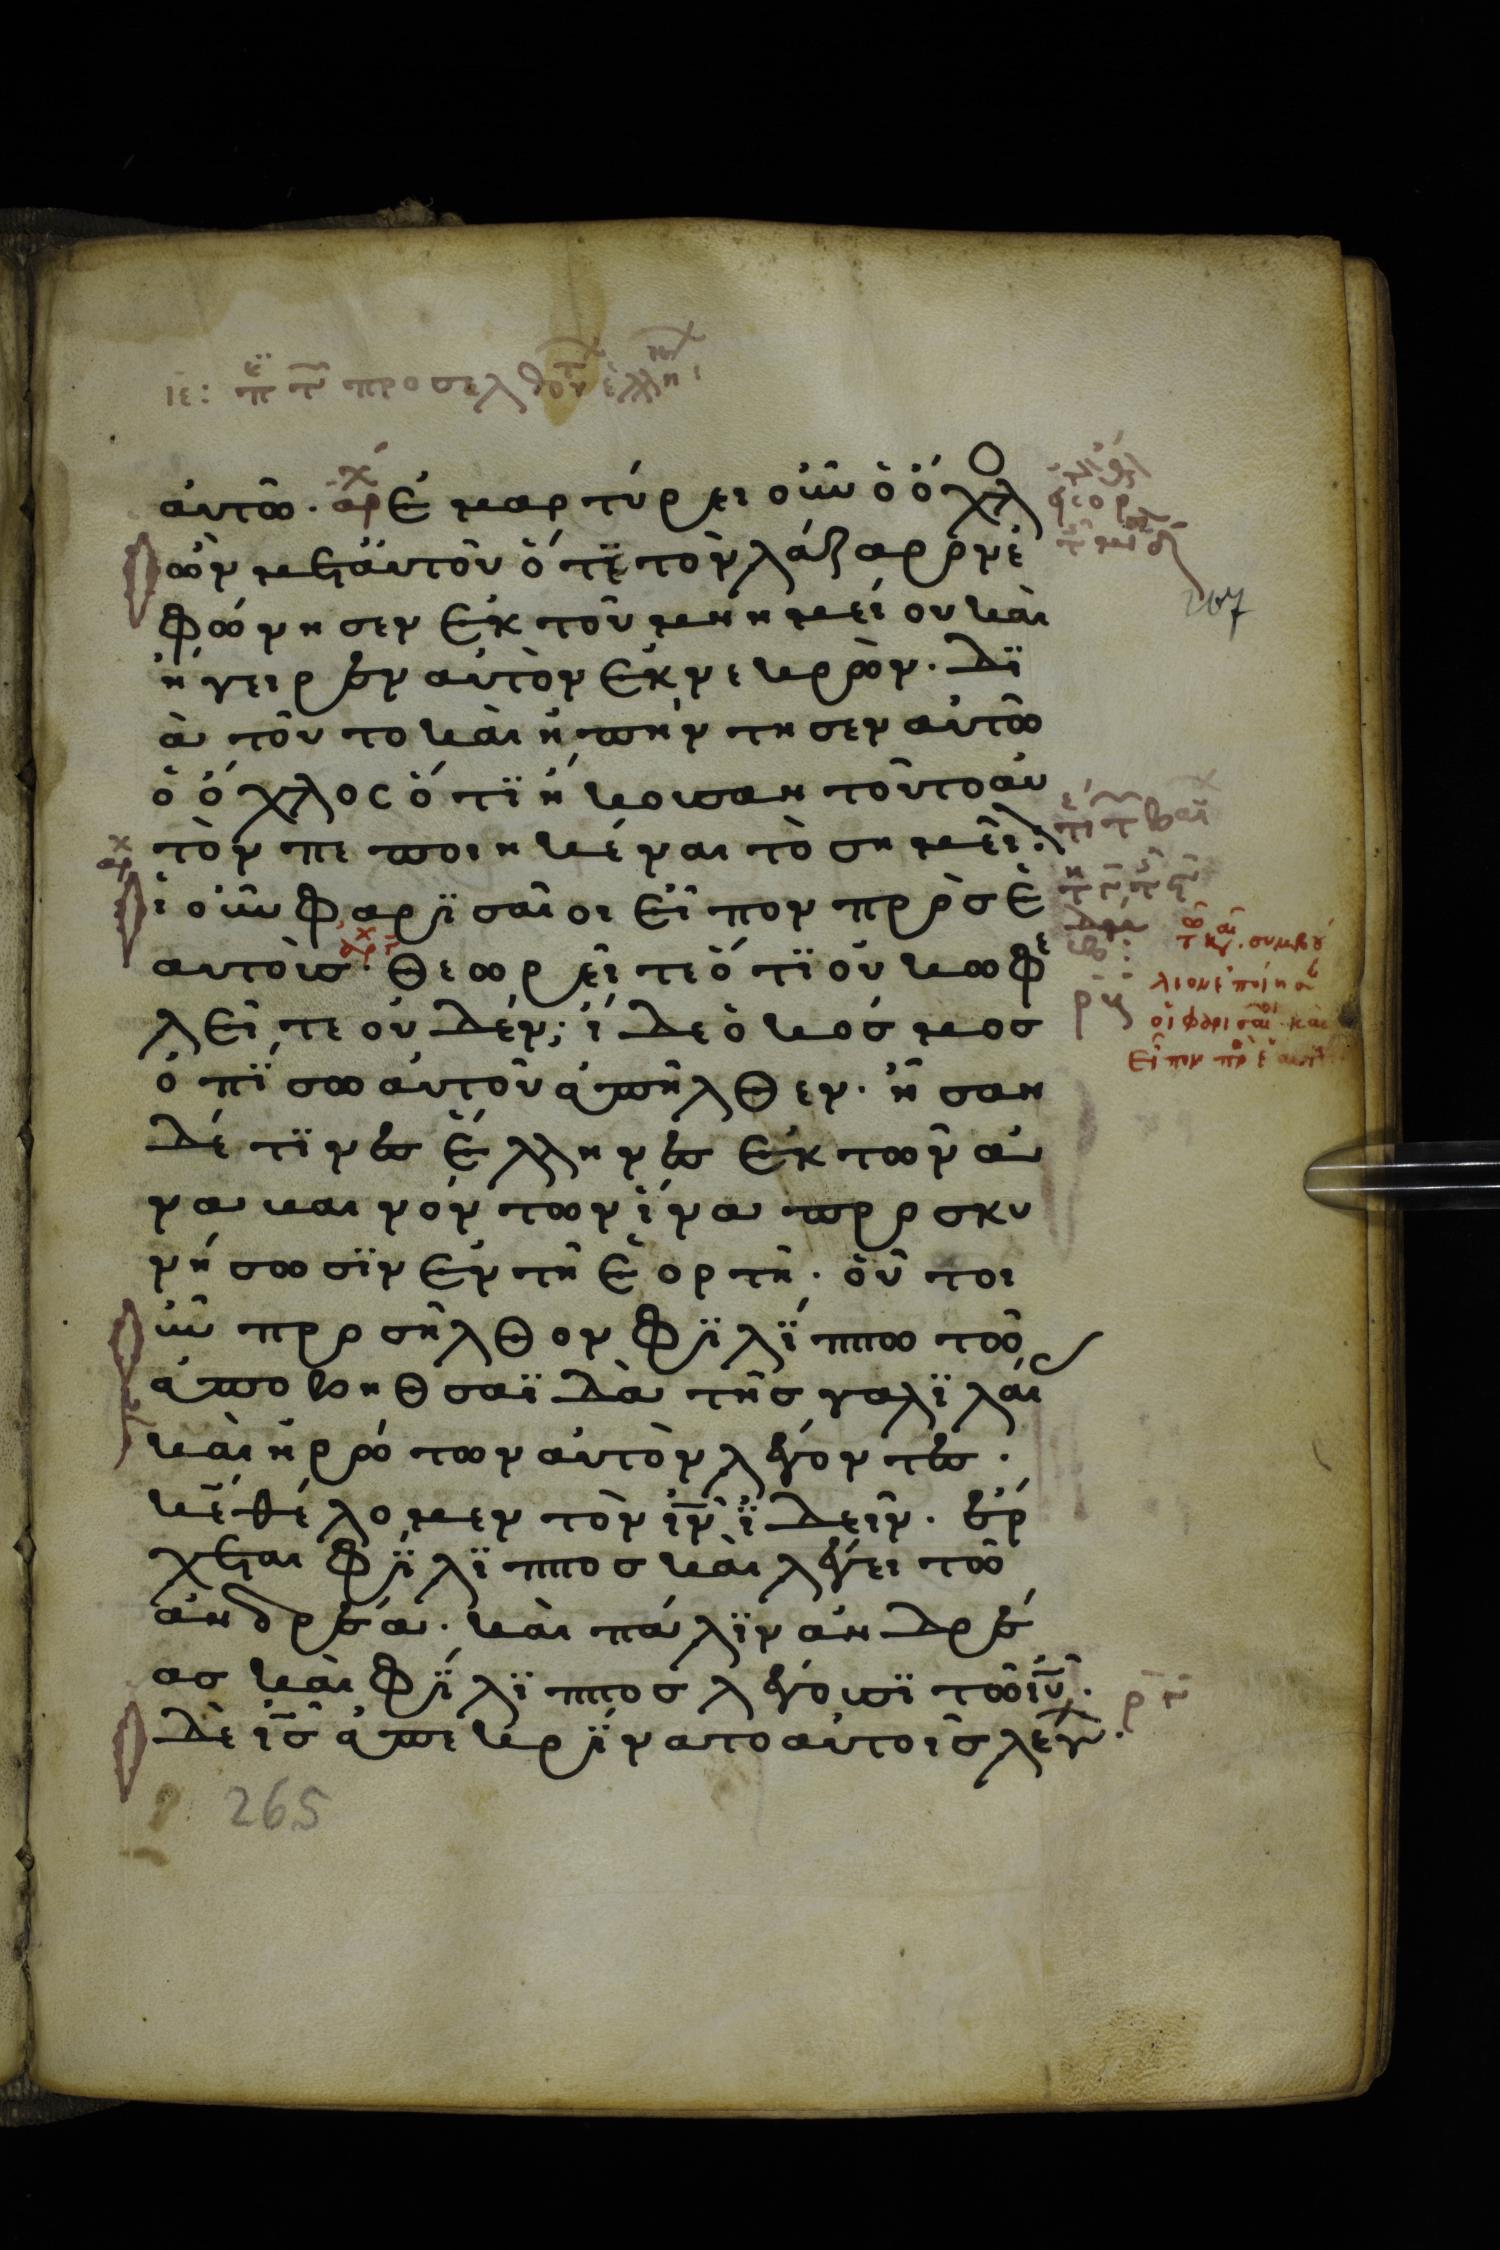 ιε: πε τῶ προσελθόντ ἑλλήν
αὐτῶ. αρχ Ἐμαρτύρει οὖν ὁ ὄχλο
ὢν μετ' αὐτοῦ ὅτε τὸν λάζαρον ἐ
φώνησεν ἐκ τοῦ μνημείου καὶ
ἤγειρεν αὐτὸν ἐκ νεκρῶν. δϊ
ὰ τοῦτο καὶ ὑπήντησεν αὐτῶ
ὁ ὄχλος ὅτϊ ἤκουσαν τοῦτο αὐ
τὸν πεποιηκέναι τὸ σημεῖ
αρχ
ἱ οὖν φαρϊσαῖοι εἶπον πρὸς ἑ
αυτοῖς. Θεωρεῖτε ὅτϊ οὐκ ὠφε
λεῖτε οὐδέν; ἴδε ὁ κόσμος
ὀπΐσω αὐτοῦ ἀπῆλθεν. ἦσαν
δέ τϊνες ἕλληνες ἐκ τῶν ἀ
ναβαινόντων ἵνα προσκυ
νήσωσϊν ἐν τῆ ἑορτῆ. οὗτοι
οὖν προσῆλθον φϊλΐππω τῶ
ἀπο βηθσαϊδὰ τῆς γαλϊλαί
καὶ ἠρώτων αὐτὸν λέγοντες.
κε θέλομεν τὸν ιν ϊδεῖν. ἔρ
χεται φΐλϊππος καὶ λέγει τῶ
ἀνδρέα. καὶ πάλϊν ἀνδρέ
ας καὶ φΐλϊππος λέγουσϊ τῶ ιυ.
δὲ ις ἀπεκρΐνατο αὐτοῖς λέγων.
συμβού
λιον ἐποίησ
οἱ φαρισαῖοι καὶ
εἶπον πρ ἑαυτ
207
265